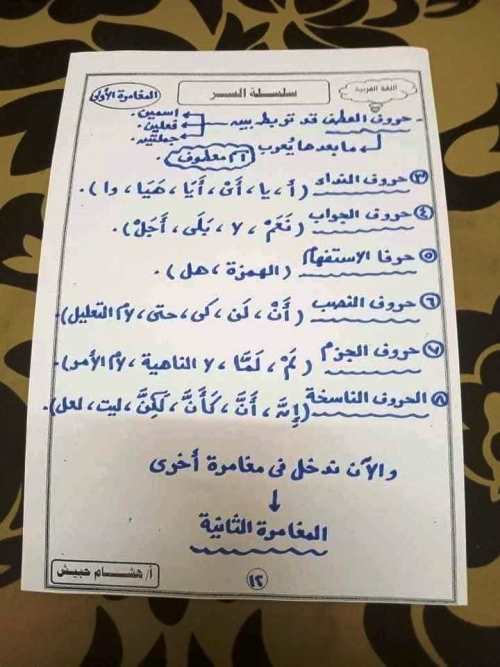 اللغة العربية
سلسلة السر
المغامرة الأولى
- حروف العطف قد تربط بين
اسمين.
فعلين.
جملتين.
ما بعدها يُعرب
معطوف
٣ حروف النداء ( أ ، يا ، أىْ ، أيَا ، هَيَا ، وا ).
٤ حروف الجواب ( نَعَمْ ، لا ، بَلَى ، أَجَلْ ).
٥ حرفا الاستفهام ( الهمزة ، هل ).
٦ حروف النصب ( أَنْ ، لَن ، كى ، حتى ، لام التعليل ).
٧ حروف الجزم ( لَمْ ، لَمَّا ، لا الناهية ، لام الأمر ).
٨ الحروف الناسخة ( إِنَّ ، أَنَّ ، كَأَنَّ ، لَكِنَّ ، ليت ، لعل ).
والآن ندخل فى مغامرة أخرى
المغامرة الثانية
أ/ هشام حبيش
١٢